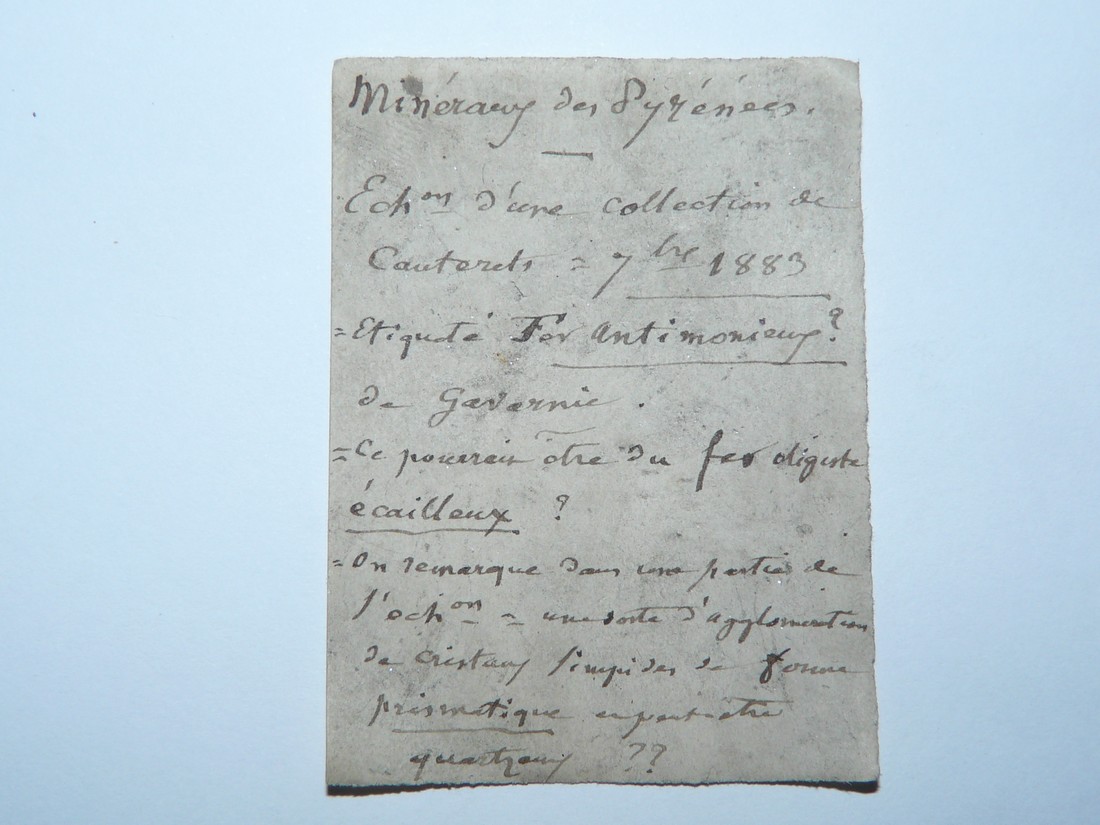 Minéraux des Pyrénées.
Echon d'une collection de
Cauterets = 7bre 1883
= Etiqueté Fer Antimonieux ?
de Gavarnie.
= Ce pourrait être du fer oligiste
écailleux ?
= On remarque dans une partie de
l'echon = une sorte d'agglomération
de cristaux limpides de forme
prismatique peut-être
quartzeux ??